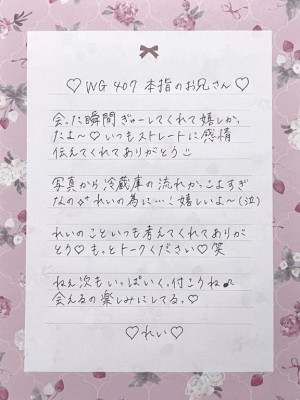 ♡ WG 407 本指のお兄さん ♡
会った瞬間ぎゅーしてくれて嬉しかっ
たよ〜♡いつもストレートに感情
伝えてくれてありがとう
写真から冷蔵庫の流れかっこよすぎ
なの れいの為に…!嬉しいよ〜(泣)
れいのこといつも考えてくれてありが
とう♡もっとトークください♡笑
ねぇ次もいっぱいくっ付こうね♪
会えるの楽しみにしてるっ♡
♡れい♡